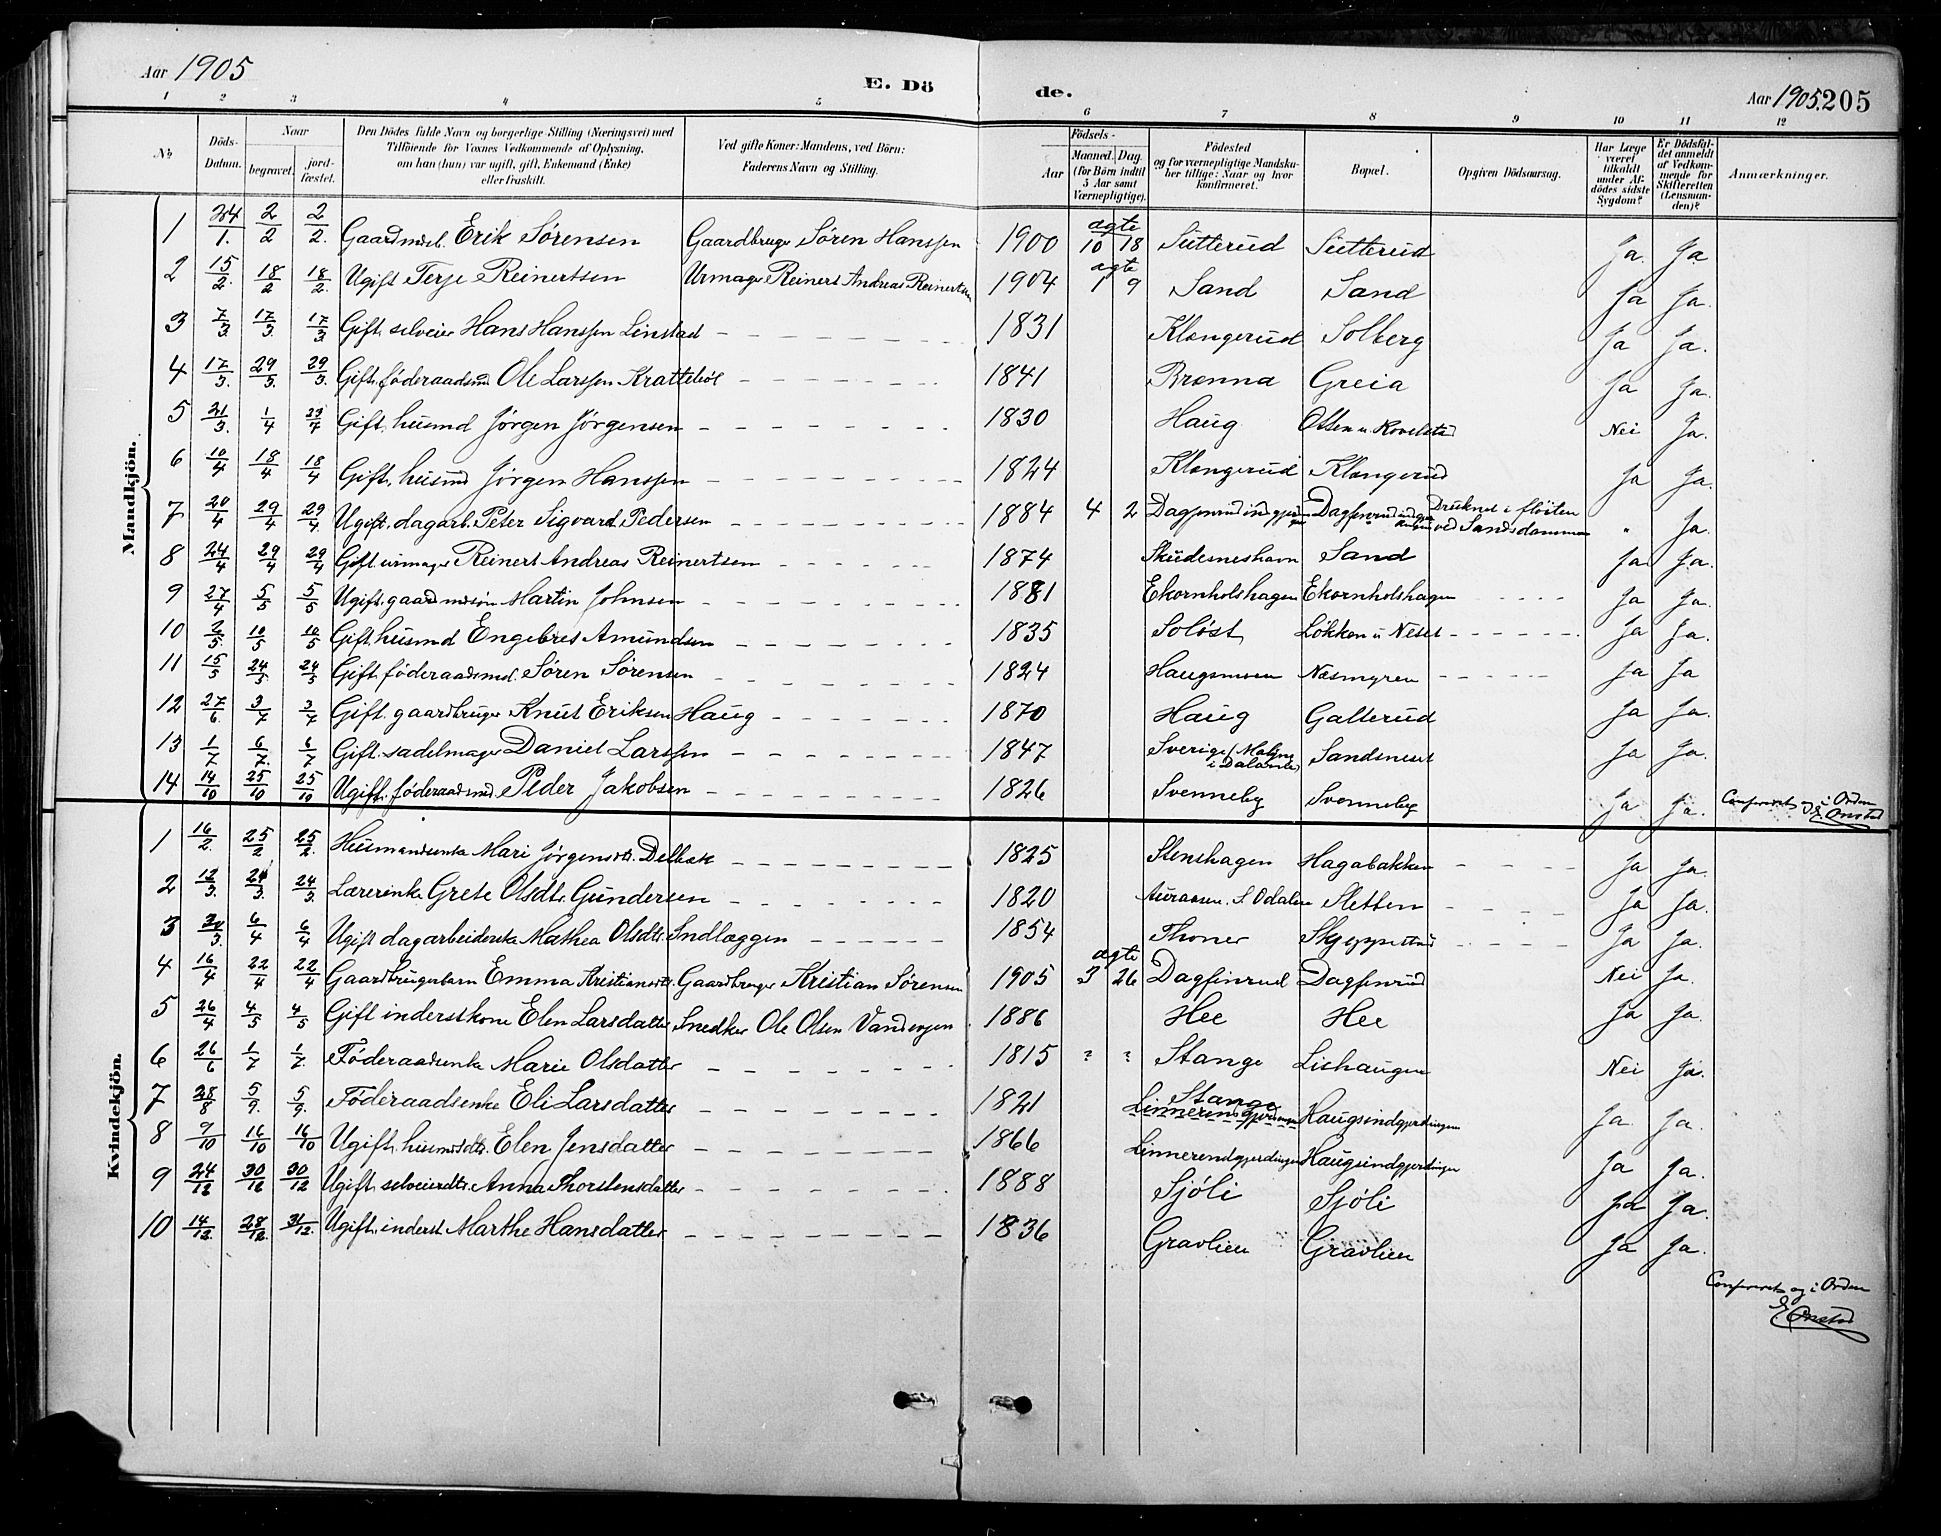 Aar 1905 E. Dö de. Aar 1905. 205
1 2 3 4 5 6 7 8 9 10 11 12
No Döds-Datum. Naar begravet. jord-fæstet. Den Dödes fulde Navn og borgerlige Stilling (Næringsvei) med Tilföiende for Voxnes Vedkommende af Oplysning, om han (hun) var ugift, gift, Enkemand (Enke) eller fraskilt. Ved gifte Koner: Mandens, ved Börn: Faderens Navn og Stilling. Födsels- Aar Maaned. Dag. (for Börn indtil 5 Aar samt Værnepligtige). Födested og for værnepligtige Mandska-ber tillige: Naar og hvor konfirmeret. Bopæl. Opgiven Dödsaarsag. Har Læge været tilkaldt under Af-dödes sidste Sygdom? Er Dödsfal-det anmeldt af Vedkom-mende for Skifteretten (Lensman-den)? Anmærkninger.
Mandkjön.
1 24/1. 2/2 2/2. Gaardmdsb. Erik Sørensen Gaardbruger Søren Hanssen 1900 ægte 10 18 Sutterud Sutterud Ja. Ja
2 15/2. 18/2 18/2. Ugift Terje Reinertsen Urmager Reinert Andreas Reinertsen 1904 ægte 1 9 Sand Sand Ja Ja.
3 7/3 17/3. 17/3 Gift. selveier Hans Hanssen Linstad 1831 Klongerud Solberg Ja Ja.
4 17/3. 29/3 29/3. Gift. föderaadsmd Ole Larssen Krattebøl 1841 Brenna Greia Ja Ja.
5 21/3. 1/4 23/4 Gift. husmd Jørgen Jørgensen 1830 Haug Ottsen u. Kovelstad Nei Ja.
6 10/4 18/4 18/4 Gift. husmd Jörgen Hanssen 1824 Klongerud Klongerud Ja Ja.
7 20/4 29/4 29/4 Ugift. dagarb. Peter Sigvard Pedersen 1884 4 2 Dagfinrud indgjerdingen Dagfinrud indgjerdingen Druknet i fløiten ved Sandsdammen " Ja.
8 24/4 29/4 29/4 Gift urmager Reinert Andreas Reinertsen 1874 Skudesneshavn Sand Ja Ja.
9 27/4 5/5 5/5 Ugift. gaardmdssön Martin Johnsen 1881 Ekornholshagen Ekornholshagen Ja Ja.
10 2/5. 10/5 10/5 Gift husmd Engebret Amundsen 1835 Soløst Løkken u Neset Ja Ja.
11 15/5 24/5 24/5 Gift. föderaadsmd. Søren Sørensen 1824 Haugsmoen Næsmyren Ja Ja
12 27/6 3/7 3/7 Gift. gaardbruger Knut Eriksen Haug 1870 Haug Galterud Ja Ja.
13 1/7 6/7. 6/7 Gift. sadelmager Daniel Larssen 1847 Sverige (Malung i Dalarne) Sandsneset Ja Ja.
14 14/10 25/10 25/10 Ugift. föderaadsmd. Peder Jakobsen 1826 Svenneby Svenneby Ja Ja. Confereret og i Orden E. Onstad
Kvindekjön.
1 16/2. 25/2 25/2. Husmandsenke Mari Jørgensdtr. Delbæk 1825 Stenshagen Hagabakken Ja Ja.
2 12/3. 24/3. 24/3. Lærerenke Grete Olsdtr Gundersen 1820 S. Odalen Sletten Ja Ja.
3 30/3. 6/4 6/4 Ugift dagarbeiderske Mathea Olsdtr. Indlæggen 1854 Thoner Skjeppestad Ja Ja.
4 16/4 22/4 22/4 Gaardbrugerbarn Emma Kristiansdtr. Gaardbruger Kristian Sørensen 1905 ægte 3 26 Dagfinrud Dagfinrud Nei Ja.
5 26/4 4/5 4/5 Gift inderstkone Elen Larsdatter Snedker Ole Olsen Vandengen 1886 Hee Hee Ja Ja.
6 26/6 1/7 1/7. Föderaadsenke Marie Olsdatter 1815 ? ? Stange Lishaugen Nei Ja.
7 28/8 5/9. 5/9. Föderaadsenke Eli Larsdatter 1821 Stange Linnerendgjerdingen Haugsindgjerdingen Ja. Ja.
8 9/10 16/10 16/10 Ugift. husmdsdtr. Elen Jensdatter 1866 Linnerendgjerdingen Haugsindgjerdingen Ja Ja.
9 24/12 30/12 30/12 Ugift selveierdtr. Anna Thorstensdatter 1888 Sjöli Sjöli Ja Ja.
10 14/12. 28/12. 31/12. Ugift. inderst Marthe Hansdatter 1836 Gravlien Gravlien Ja Ja.
Confereret og i Orden
E. Onstad